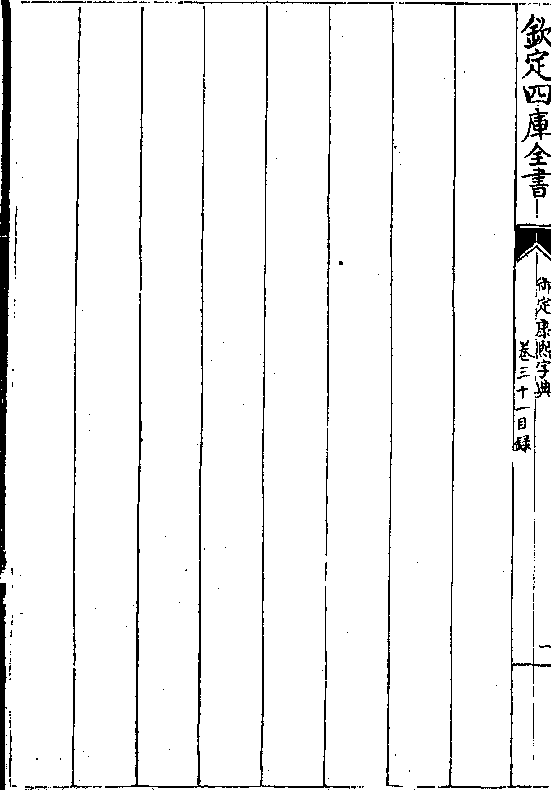 欽定四庫全書
御定康熙字典
卷三十一目録
一